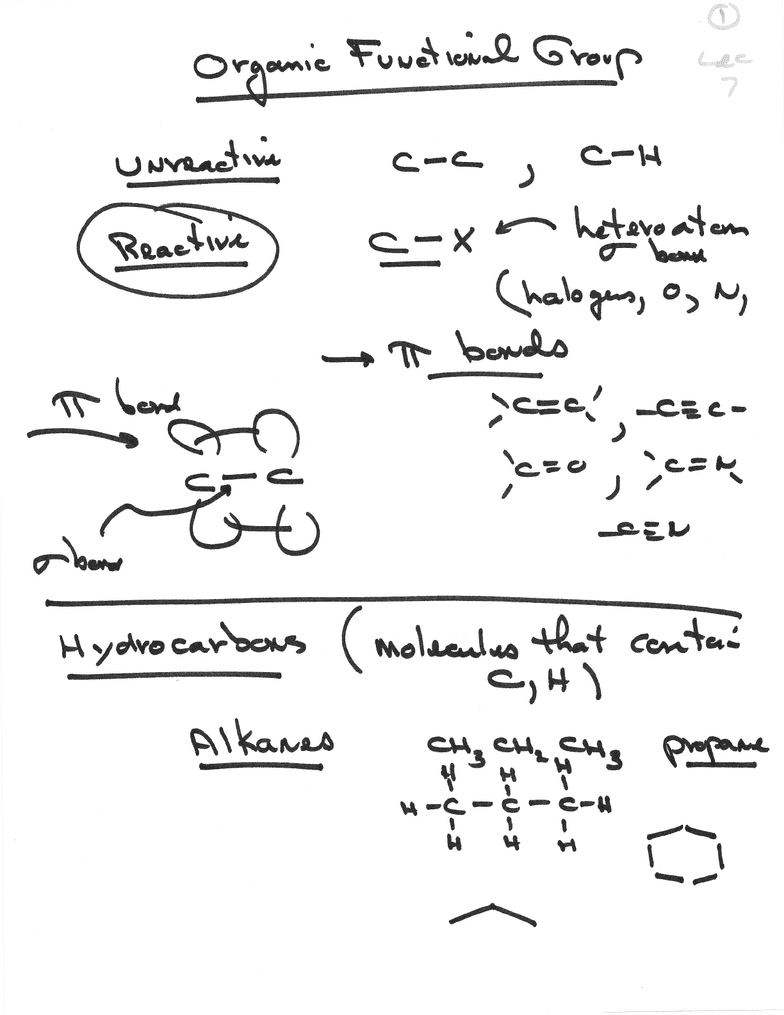 ①
Lec
7
Organic Functional Group
Unreactive C-C , C-H
Reactive C-X heteroatom
bond
(halogens, O, N,
→ π bonds
π bond
C=C , -C≡C-
C=O , C=N
C-C
-C≡N
σ bond
Hydrocarbons (molecules that contain
C, H)
Alkanes CH3 CH2 CH3 propane
H H H
H-C-C-C-H
H H H